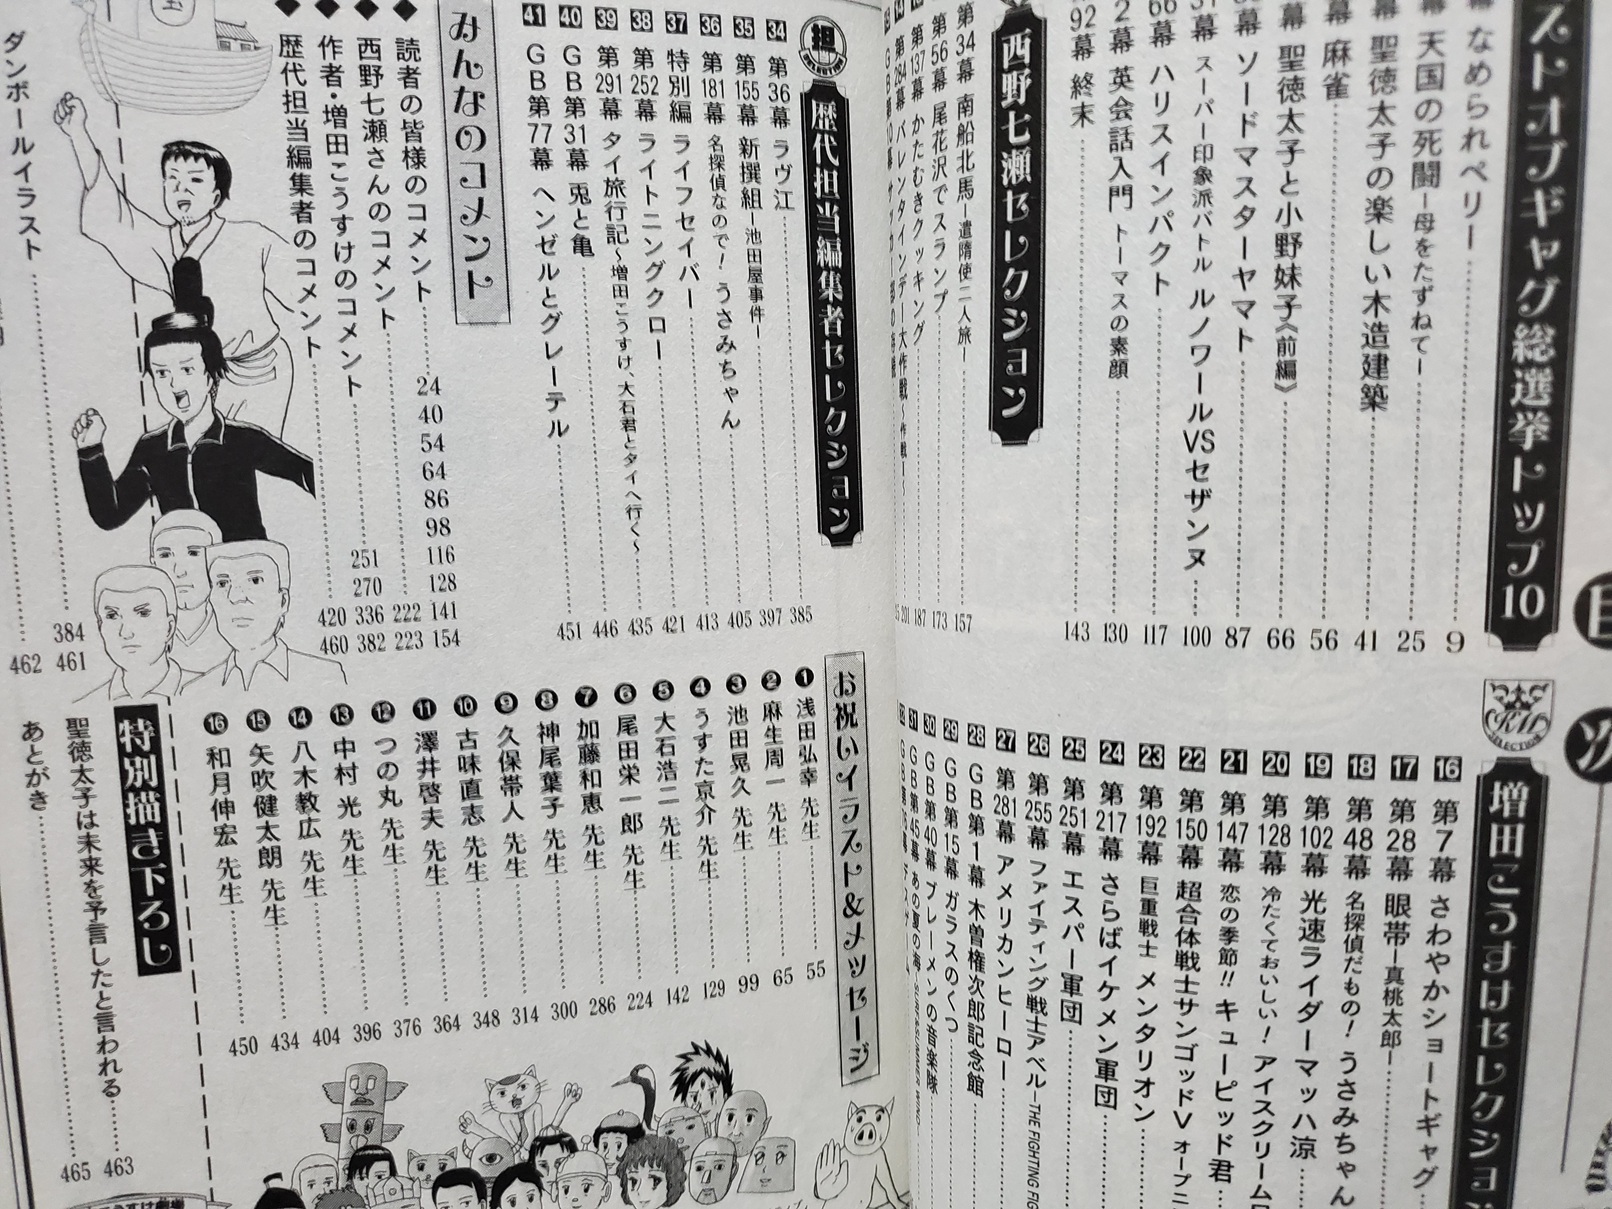 目
次
ストオブギャグ総選挙トップ10
なめられペリー 9
幕 天国の死闘―母をたずねて― 25
幕 聖徳太子の楽しい木造建築 41
幕 麻雀 56
幕 聖徳太子と小野妹子《前編》 66
幕 ソードマスターヤマト 87
幕 スーパー印象派バトル ルノワールVSセザンヌ 100
66幕 ハリスインパクト 117
2幕 英会話入門 トーマスの素顔 130
92幕 終末 143
西野七瀬セレクション
第34幕 南船北馬―遣隋使二人旅― 157
第56幕 尾花沢でスランプ 173
第137幕 かたむきクッキング 187
バレンタインデー大作戦 201
KM SELECTION
増田こうすけセレクション
16 第7幕 さわやかショートギャグ
17 第28幕 眼帯―真桃太郎―
18 第48幕 名探偵だもの！ うさみちゃん
19 第102幕 光速ライダーマッハ涼
20 第128幕 冷たくておいしい！ アイスクリーム
21 第147幕 恋の季節!! キューピッド君
22 第150幕 超合体戦士サンゴッドV オープニ
23 第192幕 巨重戦士 メンタリオン
24 第217幕 さらばイケメン軍団
25 第251幕 エスパー軍団
26 第255幕 ファイティング戦士アベル―THE FIGHTING FIG
27 第281幕 アメリカンヒーロー
28 GB第1幕 木曽権次郎記念館
29 GB第15幕 ガラスのくつ
30 GB第40幕 ブレーメンの音楽隊
31 GB第45幕 あの夏の海
担
歴代担当編集者セレクション
34 第36幕 ラヴ江 385
35 第155幕 新撰組―池田屋事件― 397
36 第181幕 名探偵なので！ うさみちゃん 405
37 特別編 ライフセイバー 413
38 第252幕 ライトニングクロー 421
39 第291幕 タイ旅行記～増田こうすけ、大石君とタイへ行く～ 435
40 GB第31幕 兎と亀 446
41 GB第77幕 ヘンゼルとグレーテル 451
みんなのコメント
◆読者の皆様のコメント 24 40 54 64 86 98 116 128 141 154
◆西野七瀬さんのコメント 222 223
◆作者・増田こうすけのコメント 251 270 336 382
◆歴代担当編集者のコメント 420 460
ダンボールイラスト 384 461
462
お祝いイラスト&メッセージ
❶浅田弘幸 先生 55
❷麻生周一 先生 65
❸池田晃久 先生 99
❹うすた京介 先生 129
❺大石浩二 先生 142
❻尾田栄一郎 先生 224
❼加藤和恵 先生 286
❽神尾葉子 先生 300
❾久保帯人 先生 314
❿古味直志 先生 348
⓫澤井啓夫 先生 364
⓬つの丸 先生 376
⓭中村 光 先生 396
⓮八木教広 先生 404
⓯矢吹健太朗 先生 434
⓰和月伸宏 先生 450
特別描き下ろし
聖徳太子は未来を予言したと言われる 463
あとがき 465